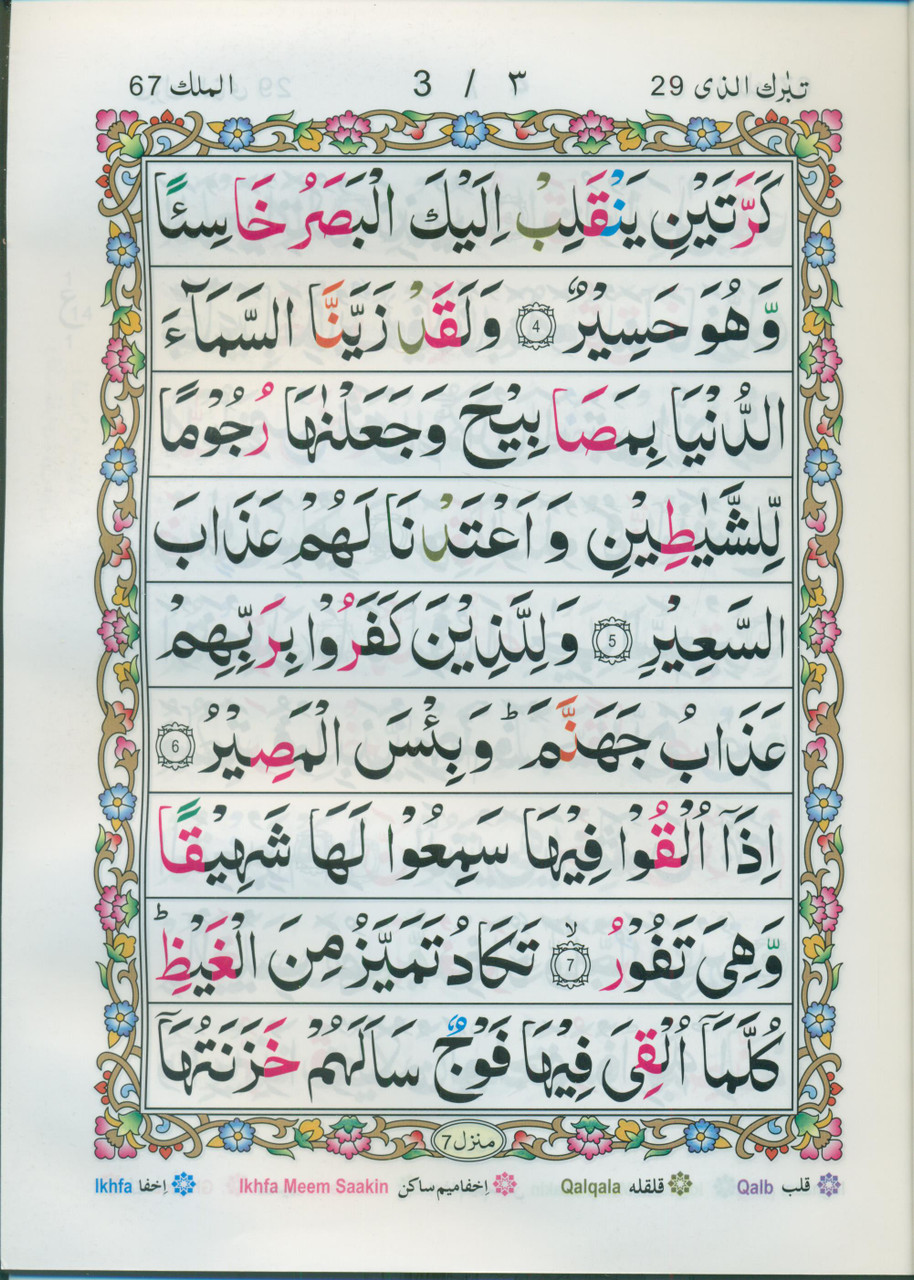 تبٰرك الذى 29 ٣ / 3 الملك 67
كَرَّتَيْنِ يَنْقَلِبْ اِلَيْكَ الْبَصَرُ خَاسِئًا
وَّهُوَ حَسِيْرٌ 4 وَلَقَدْ زَيَّنَّا السَّمَآءَ
الدُّنْيَا بِمَصَابِيْحَ وَجَعَلْنٰهَا رُجُوْمًا
لِّلشَّيٰطِيْنِ وَاَعْتَدْنَا لَهُمْ عَذَابَ
السَّعِيْرِ 5 وَلِلَّذِيْنَ كَفَرُوْا بِرَبِّهِمْ
عَذَابُ جَهَنَّمَ ؕ وَبِئْسَ الْمَصِيْرُ 6
اِذَاۤ اُلْقُوْا فِيْهَا سَمِعُوْا لَهَا شَهِيْقًا
وَّهِىَ تَفُوْرُ ۙ 7 تَكَادُ تَمَيَّزُ مِنَ الْغَيْظِ ؕ
كُلَّمَاۤ اُلْقِىَ فِيْهَا فَوْجٌ سَاَلَهُمْ خَزَنَتُهَاۤ
منزل 7
قلب Qalb قلقله Qalqala اِخفاميم ساكن Ikhfa Meem Saakin اِخفا Ikhfa